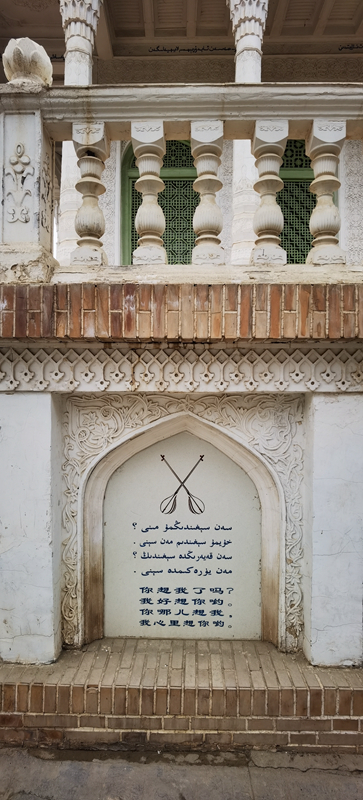 سەن سېغىندىڭمۇ مىنى ؟
خۇيمۇ سېغىندىم مەن سېنى .
سەن قەيەرىڭدە سېغىندىڭ ؟
مەن يۈرەكىمدە سېنى .
你想我了吗？
我好想你哟。
你哪儿想我。
我心里想你哟。